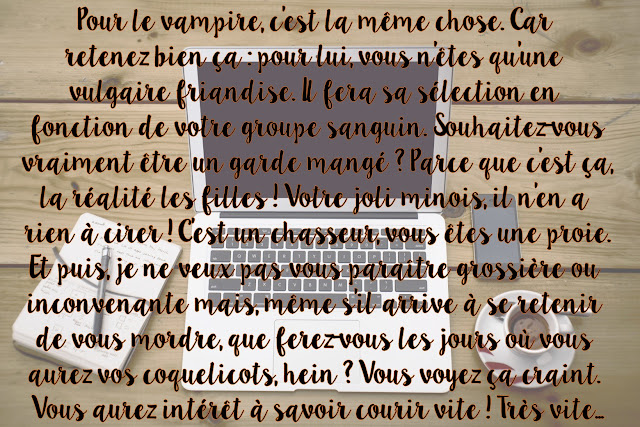 Pour le vampire, c'est la même chose. Car
retenez bien ça : pour lui, vous n'êtes qu'une
vulgaire friandise. Il fera sa sélection en
fonction de votre groupe sanguin. Souhaitez-vous
vraiment être un garde mangé ? Parce que c'est ça,
la réalité les filles ! Votre joli minois, il n'en a
rien à cirer ! C'est un chasseur, vous êtes une proie.
Et puis, je ne veux pas vous paraitre grossière ou
inconvenante mais, même s'il arrive à se retenir
de vous mordre, que ferez-vous les jours où vous
aurez vos coquelicots, hein ? Vous voyez ça craint.
Vous aurez intérêt à savoir courir vite ! Très vite...